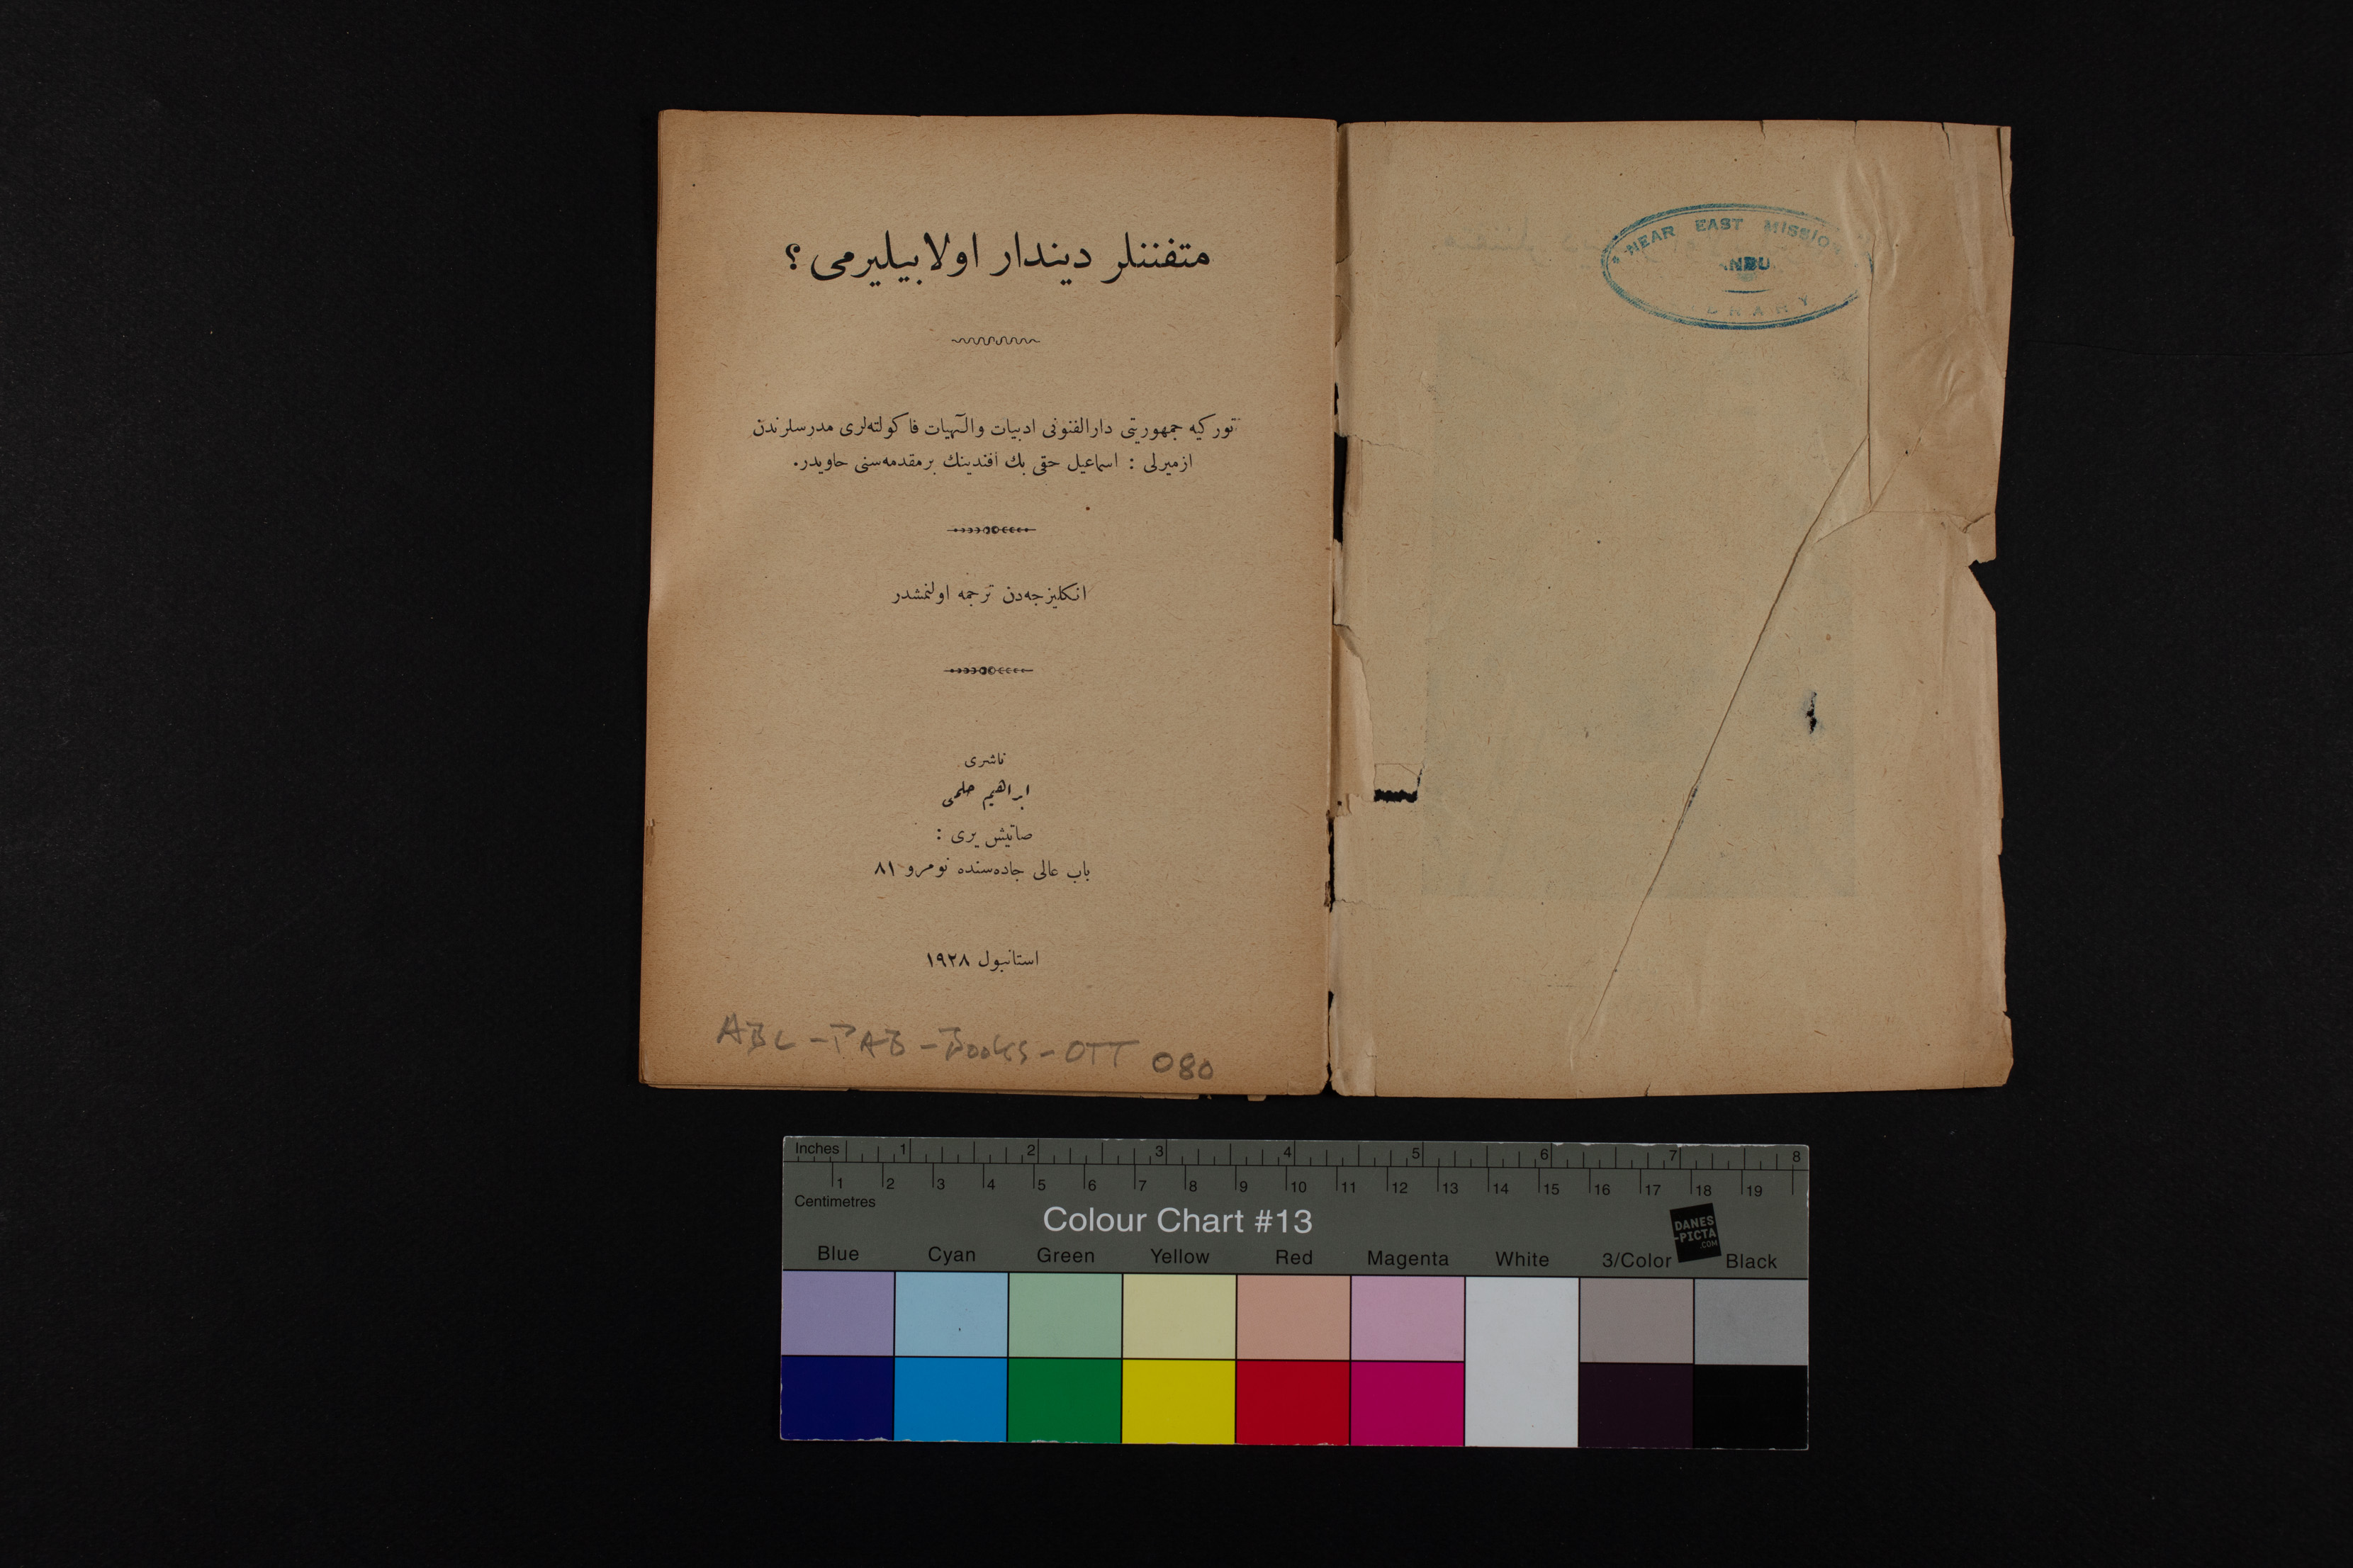 متفننلر دیندار اولابیلیرمی؟
تورکیه جمهوریتی دارالفنونی ادبیات والٓهیات فاکولتەلری مدرسلرندن
ازمیرلی : اسماعیل حقی بك افندینك برمقدمەسنی حاویدر.
انکلیزجەدن ترجمه اولنمشدر
ناشری
ابراهیم حلمی
صاتیش یری :
باب عالی جادەسنده نومرو ٨١
استانبول ١٩٢٨
ABC-PAB-Books-OTT 080
NEAR EAST MISSION
Inches 1 2 3 4 5 6 7 8
1 2 3 4 5 6 7 8 9 10 11 12 13 14 15 16 17 18 19
Centimetres
Colour Chart #13
DANES
-PICTA
.COM
Blue Cyan Green Yellow Red Magenta White 3/Color Black